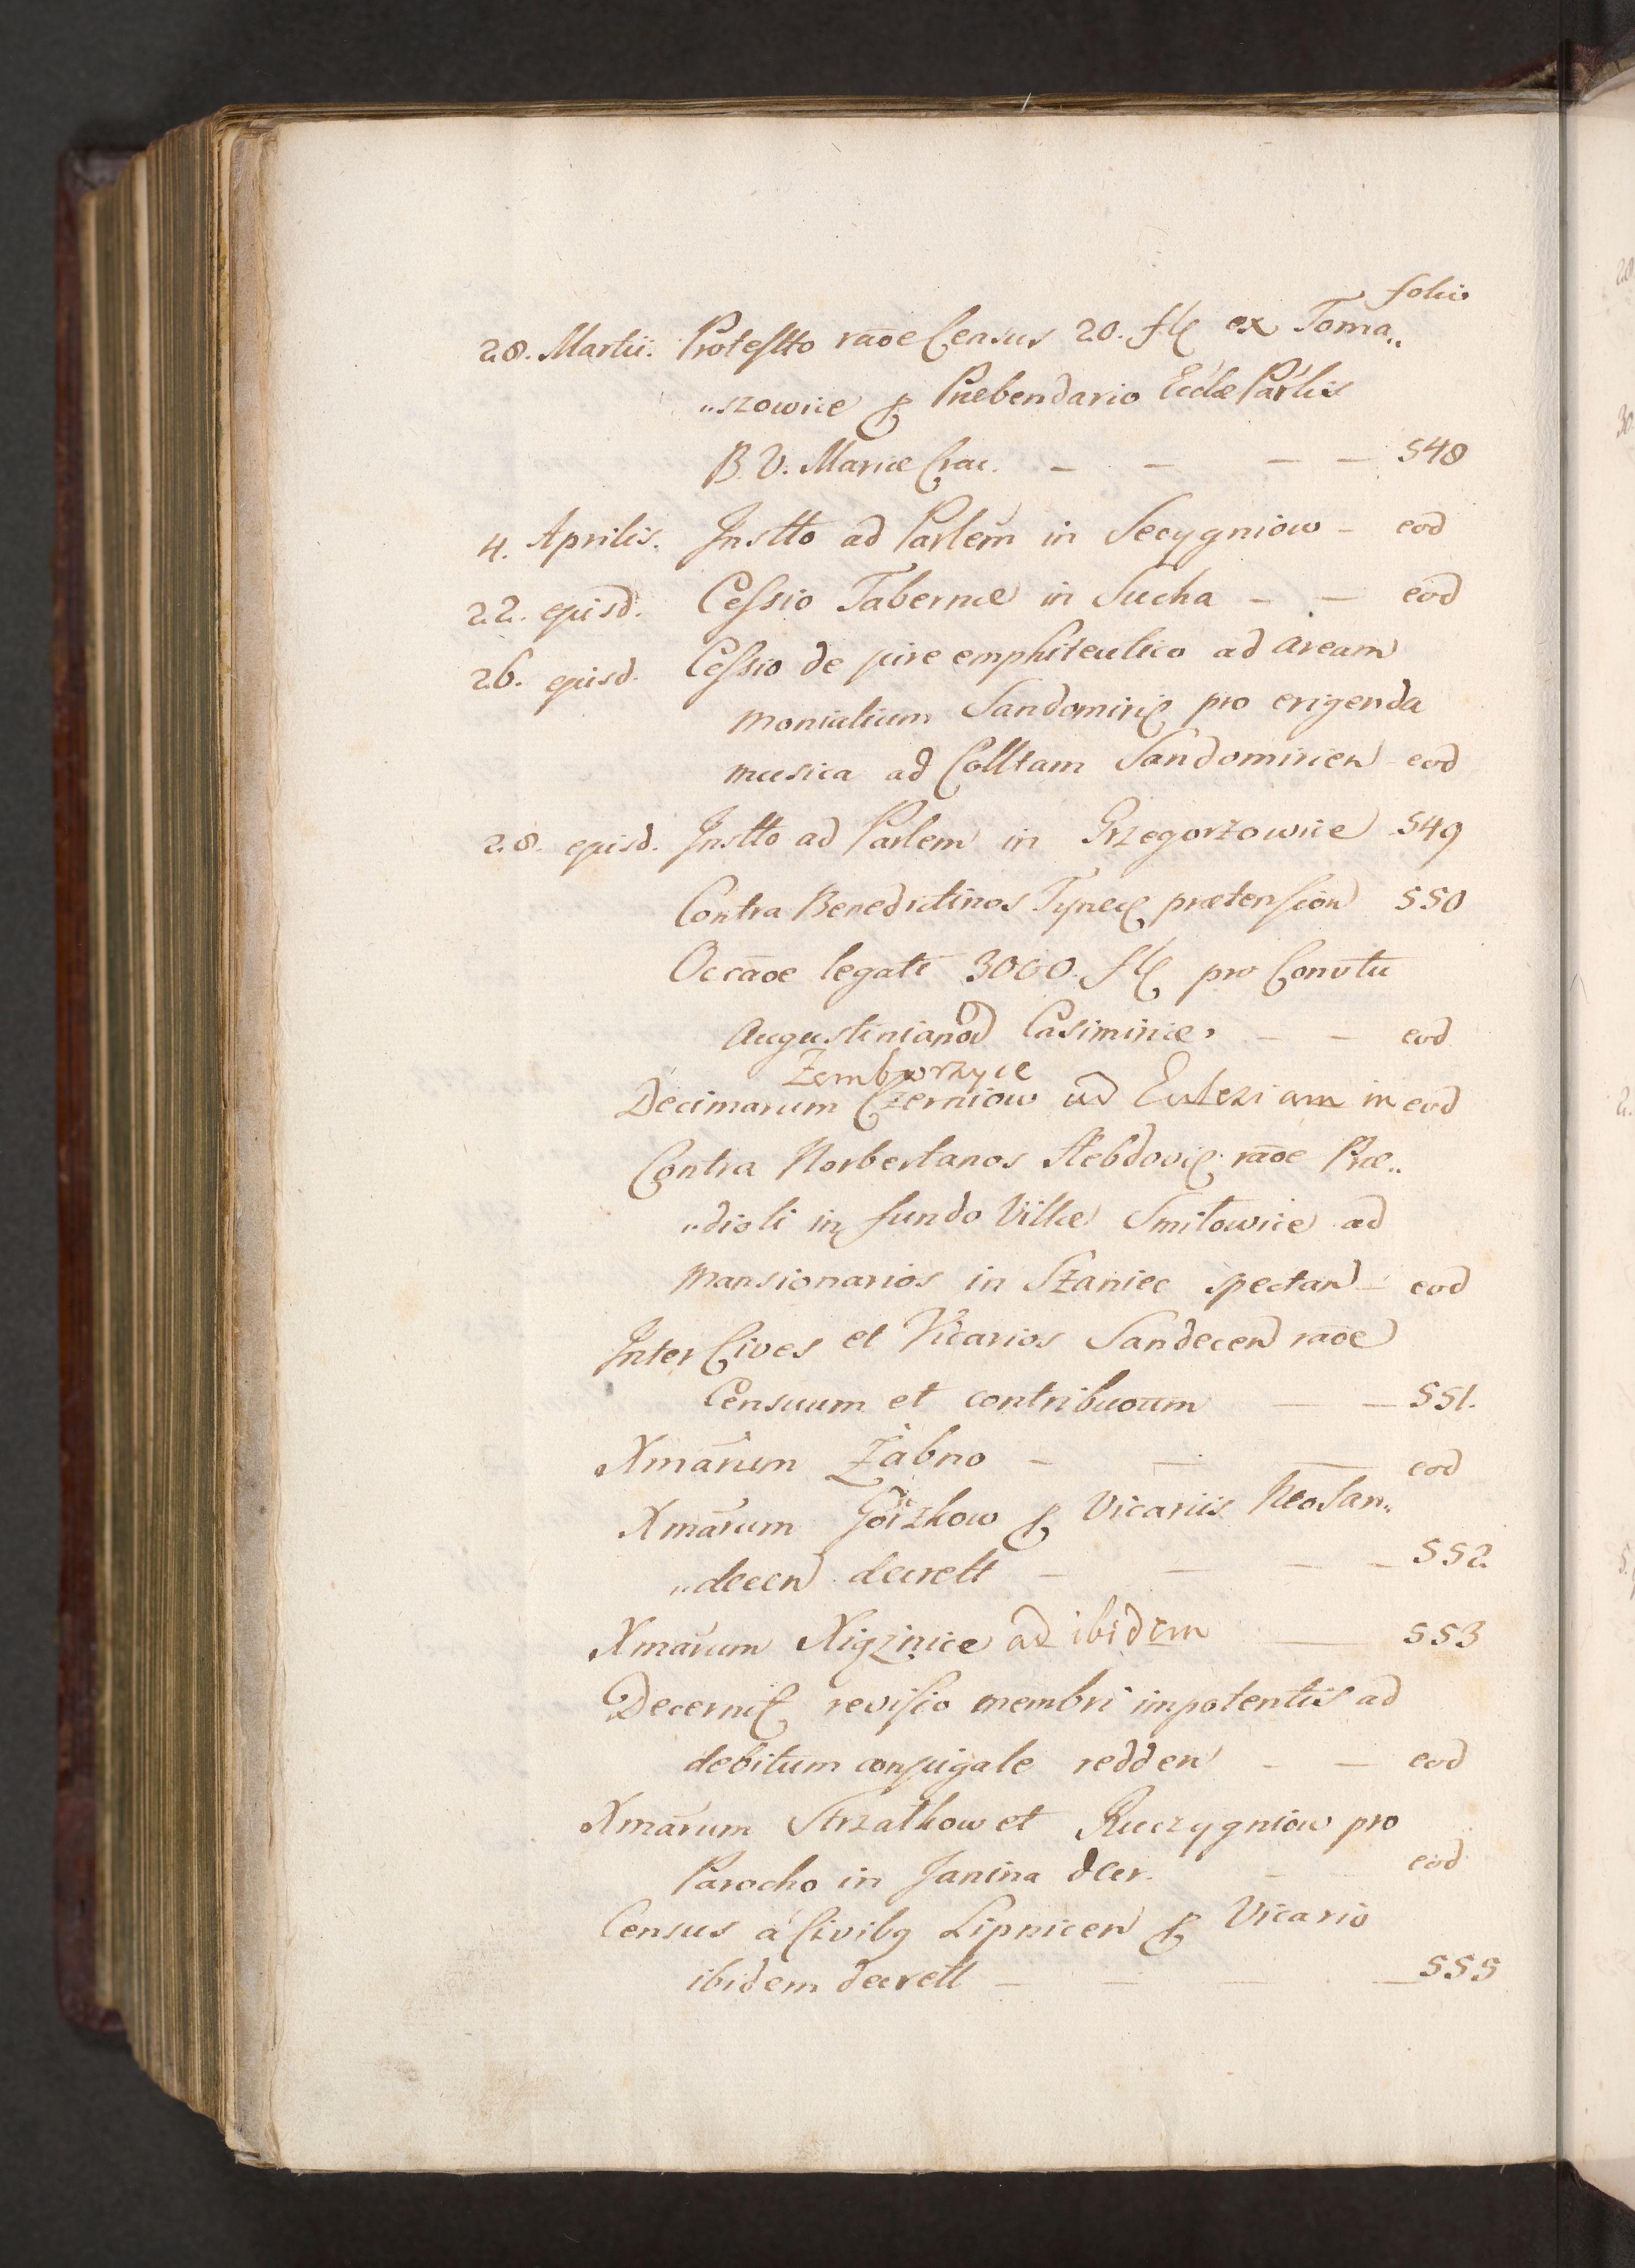 folio
28. Martii. Protestto raōe Census 20. fl ex Toma„
„szowice p Praebendario Eccłae Parłis
B. V. Mariae Crac. — — — — 548
4. Aprilis. Instto ad Parlem in Secygniow – eod
22. ejusd. Cessio Tabernae in Sucha – — eod
26. ejusd. Cessio de jure emphiteutico ad aream
monialium Sandomirię pro erigenda
musica ad Colltam Sandomirien eod
28. ejusd. Instto ad Parlem in Grzegorzowice 549
Contra Benedictinos Tynecę praetension 550
Occāoe legati 3000. fl pro Convtu
Augustinianod Casimiriae, — — eod
Zemborzyce
Decimarum Czerniow ad Eccleziam in eod
Contra Norbertanos Hebdovię raōe Prae„
„dioli in fundo Villae Smiłowice ad
Mansionarios in Szaniec spectan – eod
Inter Cives et Vicarios Sandecen raōe
Censuum et contribuoum — — 551.
Xmārum Żabno – — — eod
Xmārum Gorzkow p Vicariis Neosan„
„decen decrett – — — – 552
Xmārum Xigznice ad ibidem — 553
Decernię revisio membri impotentis ad
debitum conjugale redden – — eod
Xmārum Strzałkow et Ruczygniow pro
Parocho in Janina dcer. – eod
Census á Civibg Lipnicen p Vicario
ibidem decrett – — — — 555